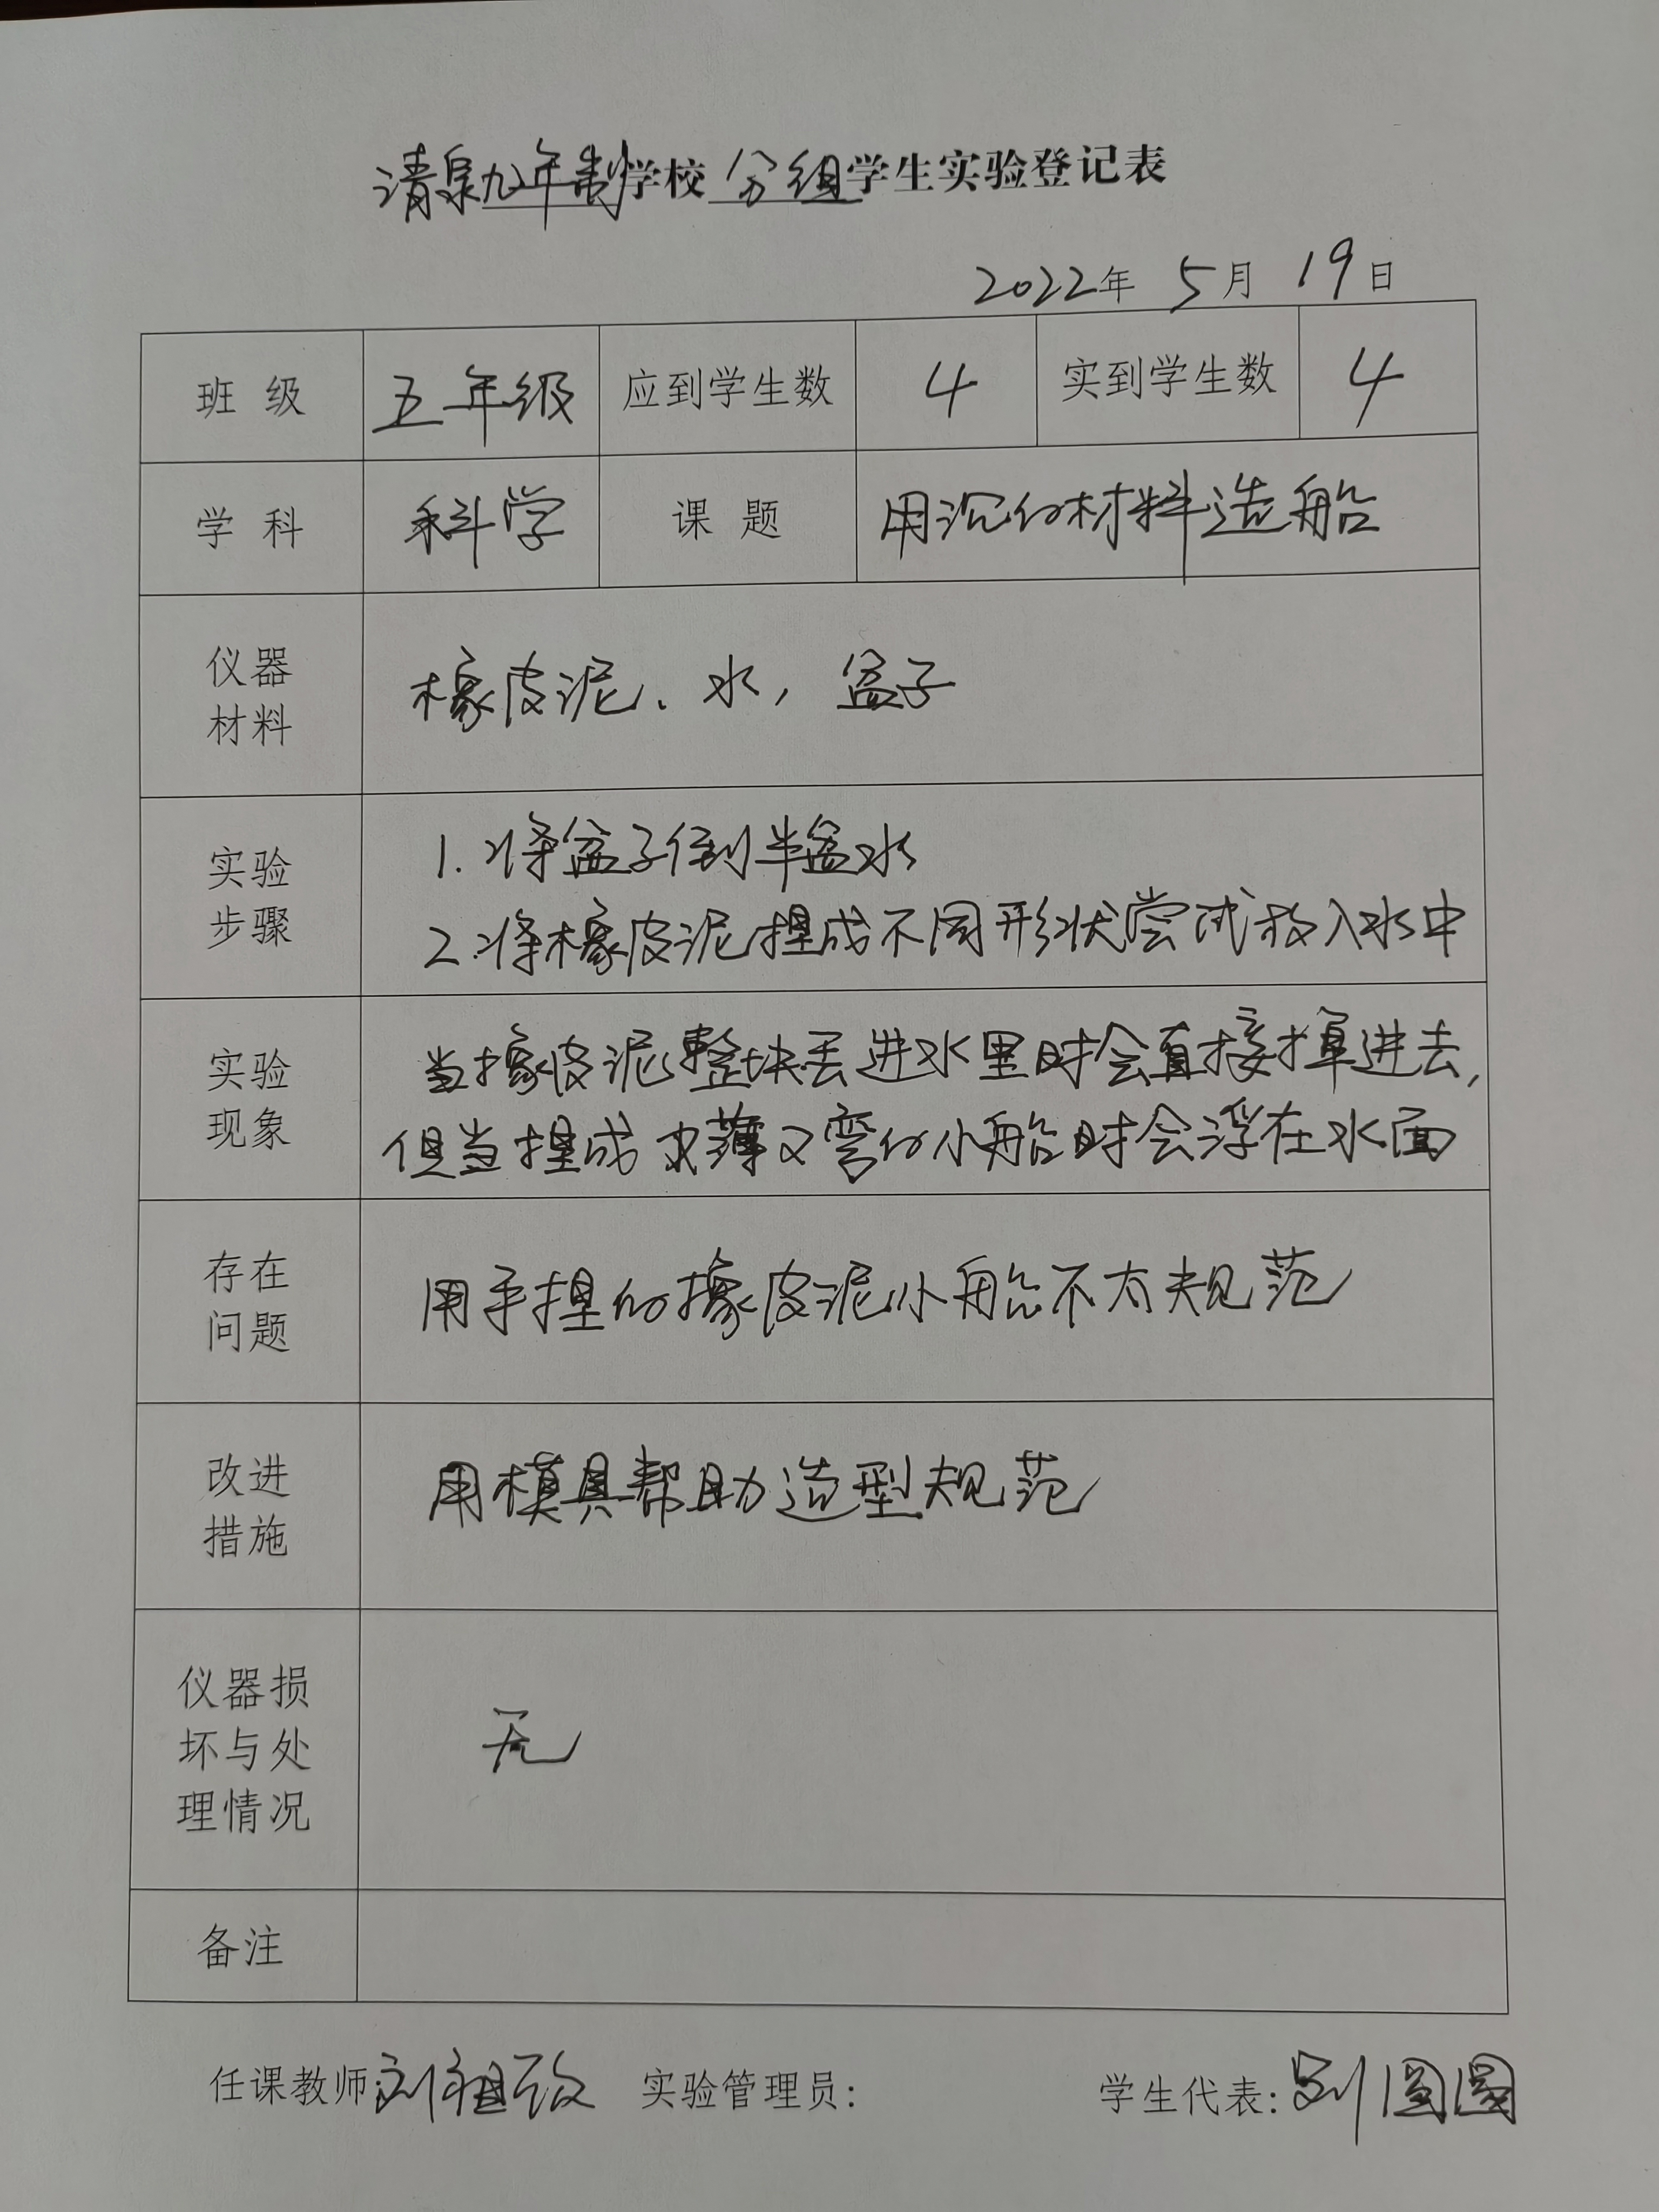 清泉九年制学校 分组学生实验登记表
2022年 5月 19日
班 级 五年级 应到学生数 4 实到学生数 4
学 科 科学 课 题 用沉的材料造船
仪器
材料
橡皮泥、水, 盆子
实验
步骤
1.将盆子倒半盆水
2.将橡皮泥捏成不同形状尝试放入水中
实验
现象
当橡皮泥整块丢进水里时会直接掉进去,
但当捏成又薄又弯的小船时会浮在水面
存在
问题
用手捏的橡皮泥小船不太规范
改进
措施
用模具帮助造型规范
仪器损
坏与处
理情况
无
备注
任课教师 刘祖 实验管理员: 学生代表: 圆圆